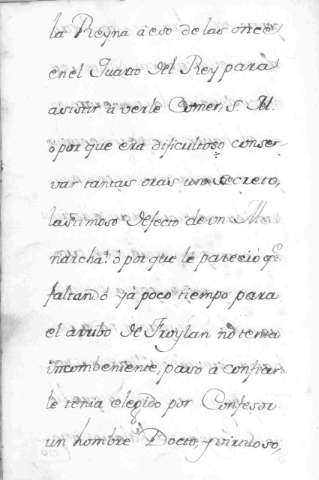 la Reyna á eso de las once
en el Quarto del Rey para
asistir á verle Comer, S. M.
ó por que era dificultoso conser
var tantas oras un secreto,
lastimoso defecto de un M
narcha! ó por que le pareció q.e
faltando yá poco tiempo para
el arribo de Froylan no tenia
incombeniente, pasó a confiar
le tenia elegido por Confesor
un hombre Docto, y virtuoso,